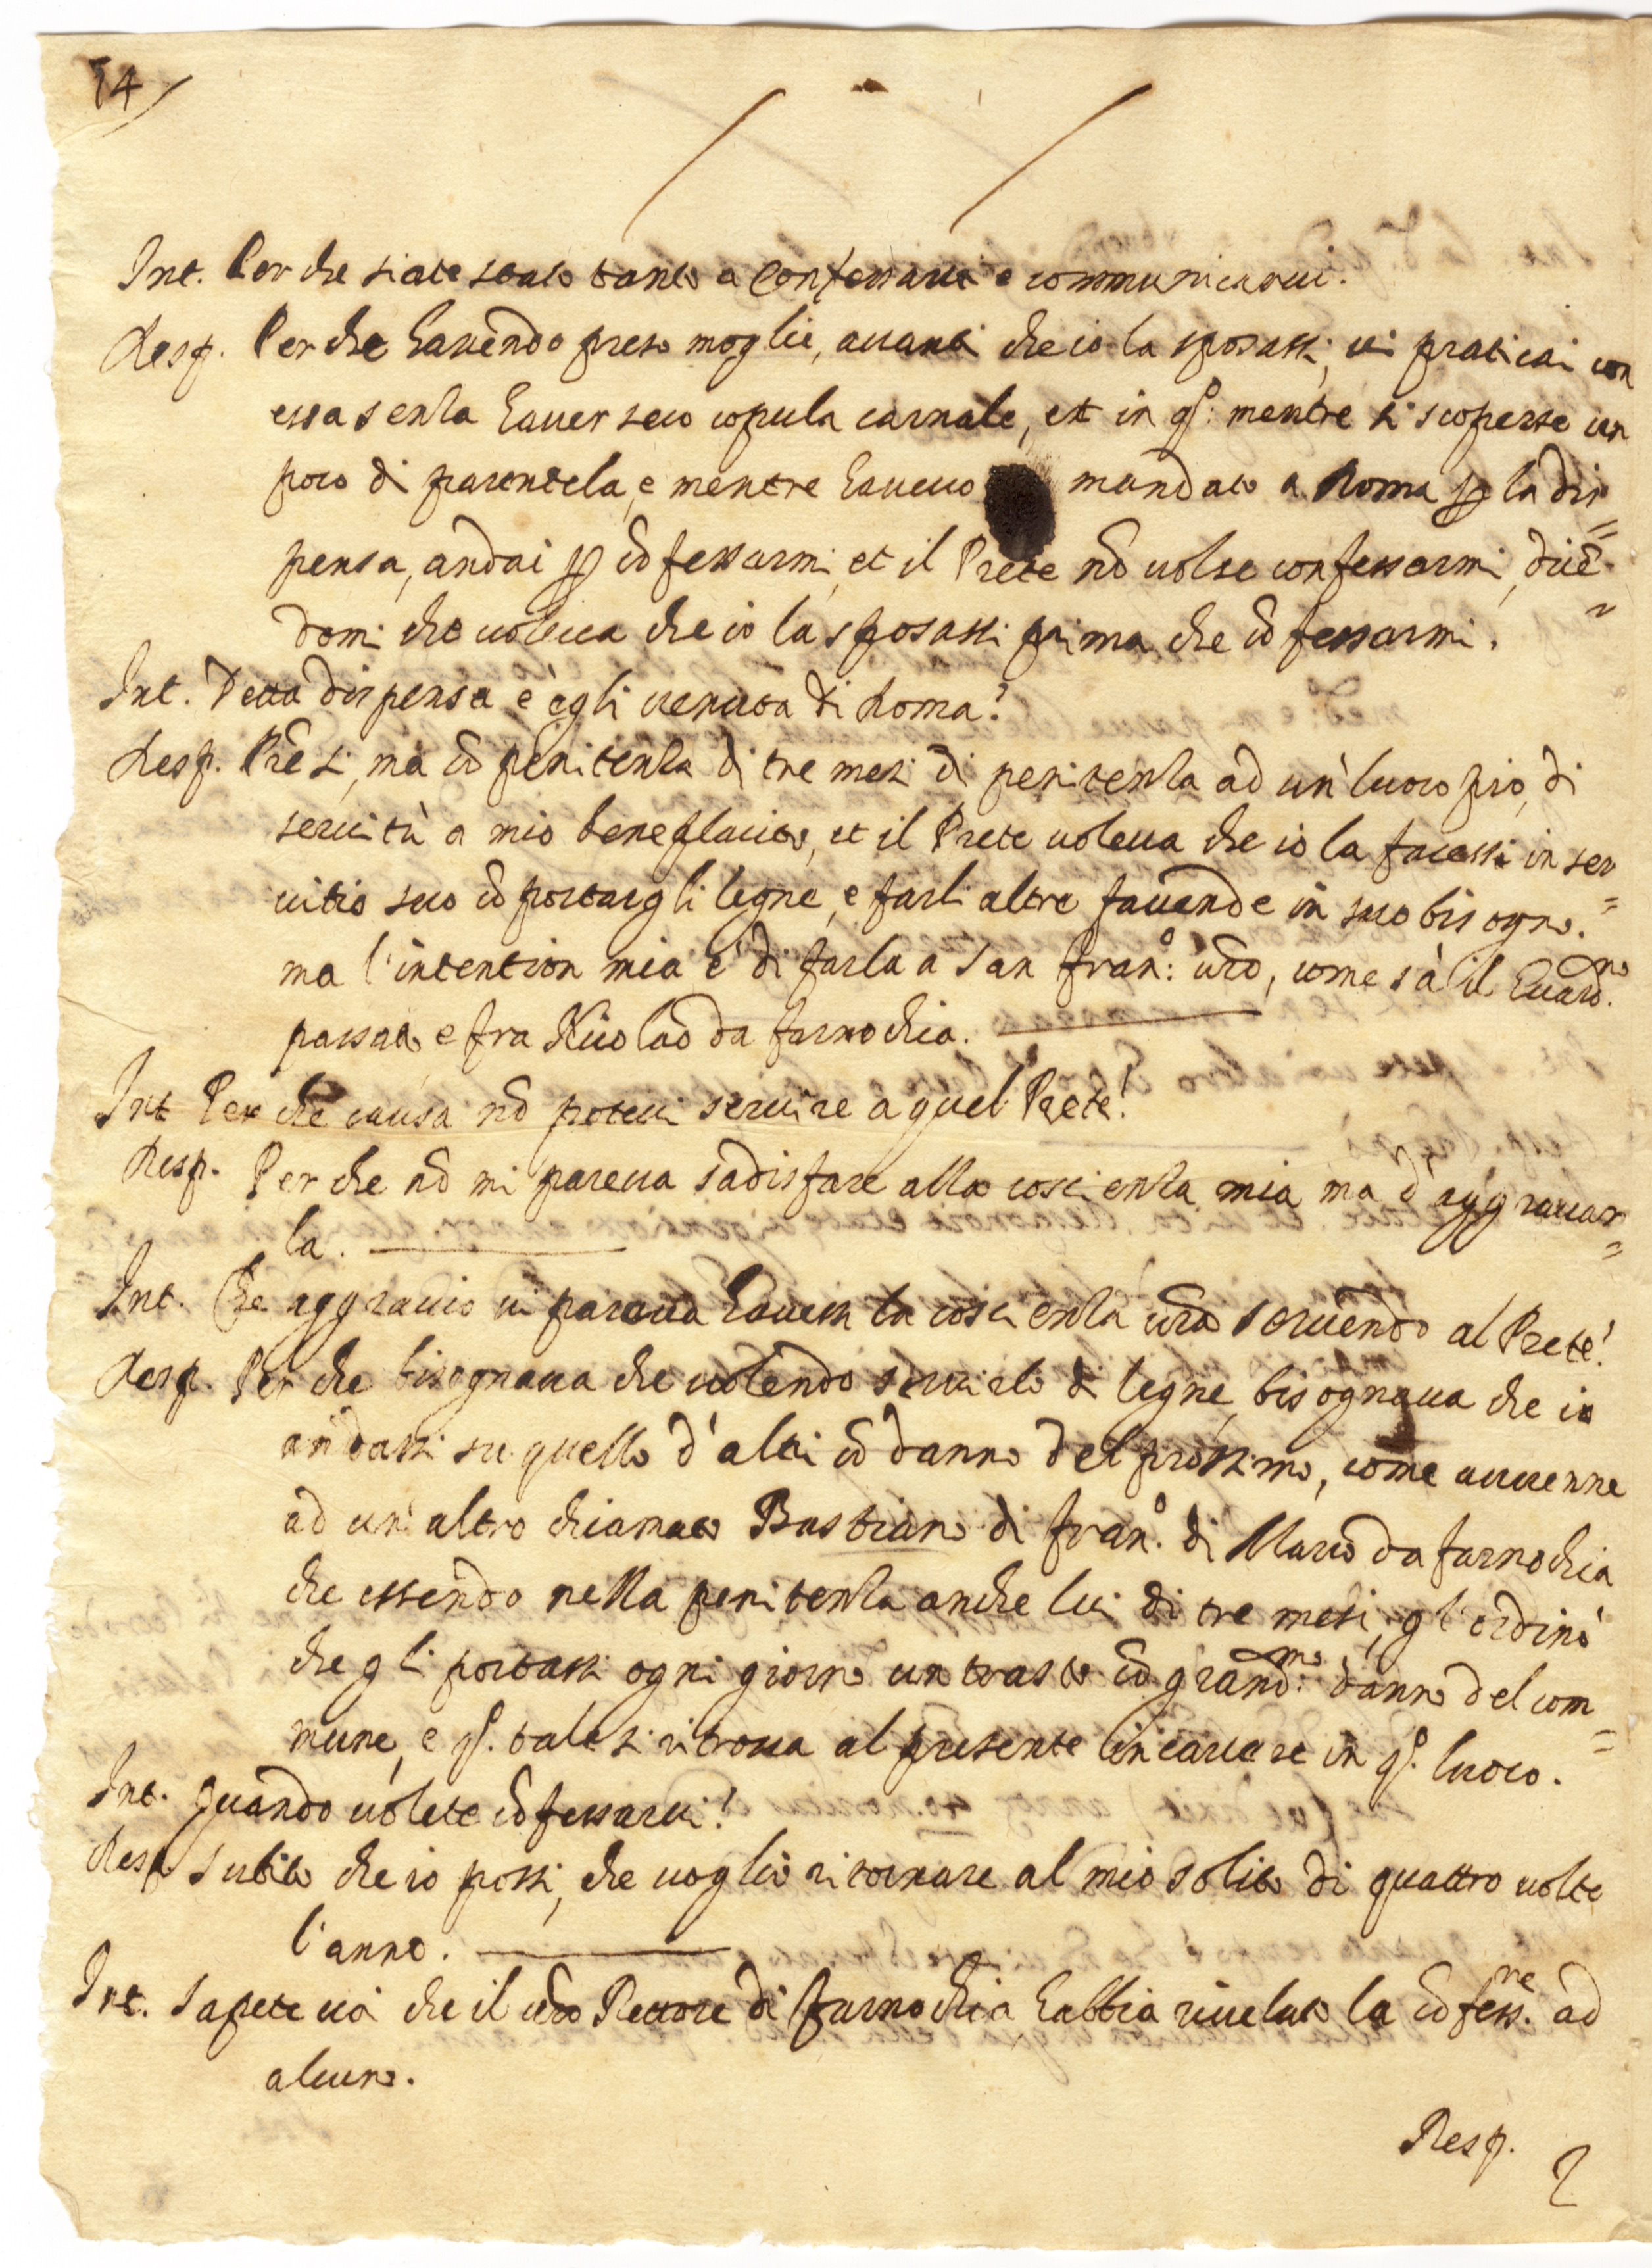 14
Int. Per che siate stato tanto a confessarui e communicarui.
Resp. Per che hauendo preso moglie, auanti che io la sposassi, ui praticai con
essa senza hauer seco copula carnale, et in qo: mentre si scoperse un
poco di parentela, e mentre haueuo mandato a Roma p la dis=
pensa, andai p cõfessarmi, et il Prete nõ uolse confessarmi, dicẽ=
domi che uoleua che io la sposassi prima che cõfessarmi.
Int. Detta dispensa è egli uenuta di Roma?
Resp. Pre si, ma cõ penitenza di tre mesi di penitenza ad un' luoco pio, di
seruitù a mio beneplacito, et il Prete uoleua che io la facessi in ser=
uitio suo cõ portargli legne, e farli altre facende in suo bisogno.
ma l'intention mia è di farla a San Frano: uro, come sà il Guardno.
passato e fra Nicolao da farnochia.
Int Per che causa nõ poteui seruire a quel Prete?
Resp. Per che nõ mi pareua sadisfare alla coscienza mia, ma d'aggrauar=
la.
Int. Che aggrauio ui pareua hauessi la coscienza ura seruendo al Prete?
Resp. Per che bisognaua che uolendo seruirlo di legne, bisognaua che io
andassi su quello d'altri cõ danno del prossimo, come auuenne
ad un' altro chiamato Bastiano di frano. di Marco da farnochia
che essendo nella penitenza anche lui di tre mesi, gl'ordinò
che gli portassi ogni giorno un trasto cõ grandmo: danno del com=
mune, e qo. tale si ritroua al presente in carcere in qo. luoco.
Int. quando uolete cõfessarui?
Resp Subito che io possi, che uoglio ritornare al mio solito di quattro uolte
l'anno.
Int. Sapete uoi che il uro Rettore di farnochia habbia riuelato la cõfessne. ad
alcuno.
Resp.